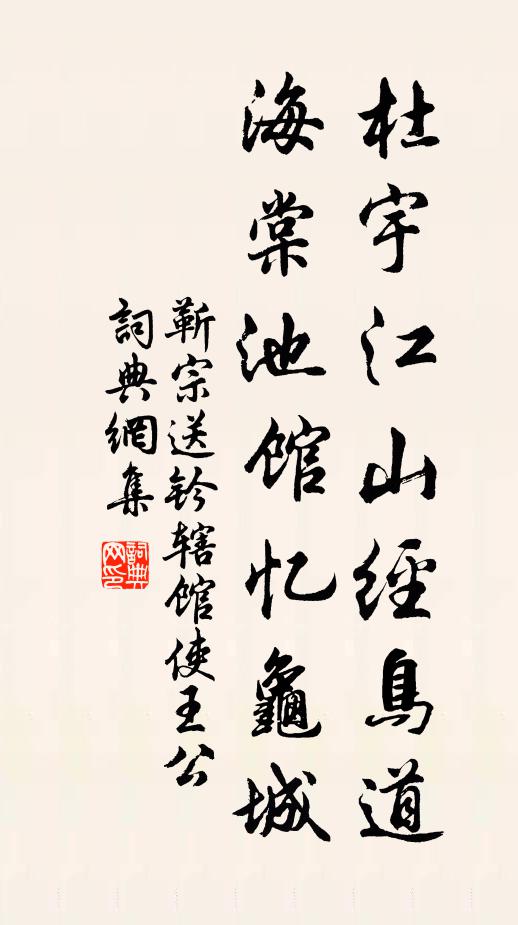 杜宇江山經鳥道
海棠池馆忆龜城
靳宗送鈐辖馆使王公
詞典網集
詞典网印